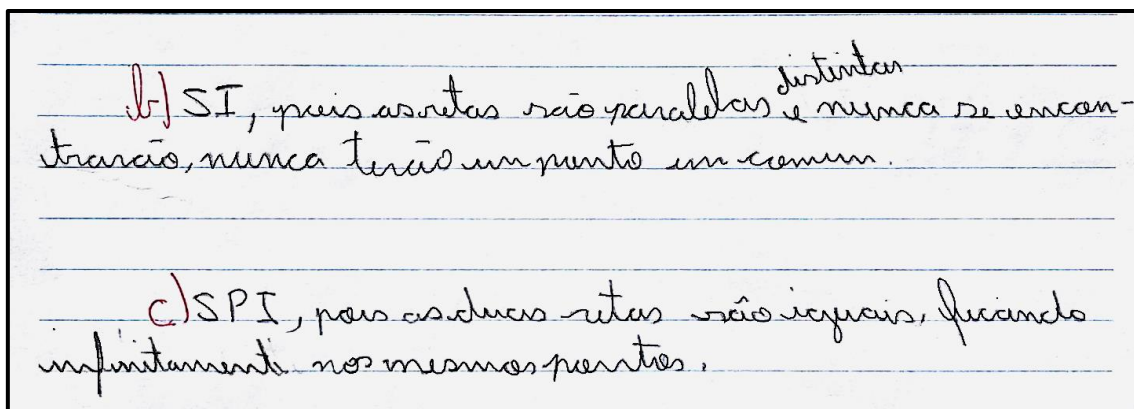 b) SI, pois as retas são paralelas distintas e nunca se encon-
trarão, nunca terão um ponto em comum.
c) SPI, pois as duas retas são iguais, ficando
infinitamente nos mesmos pontos.